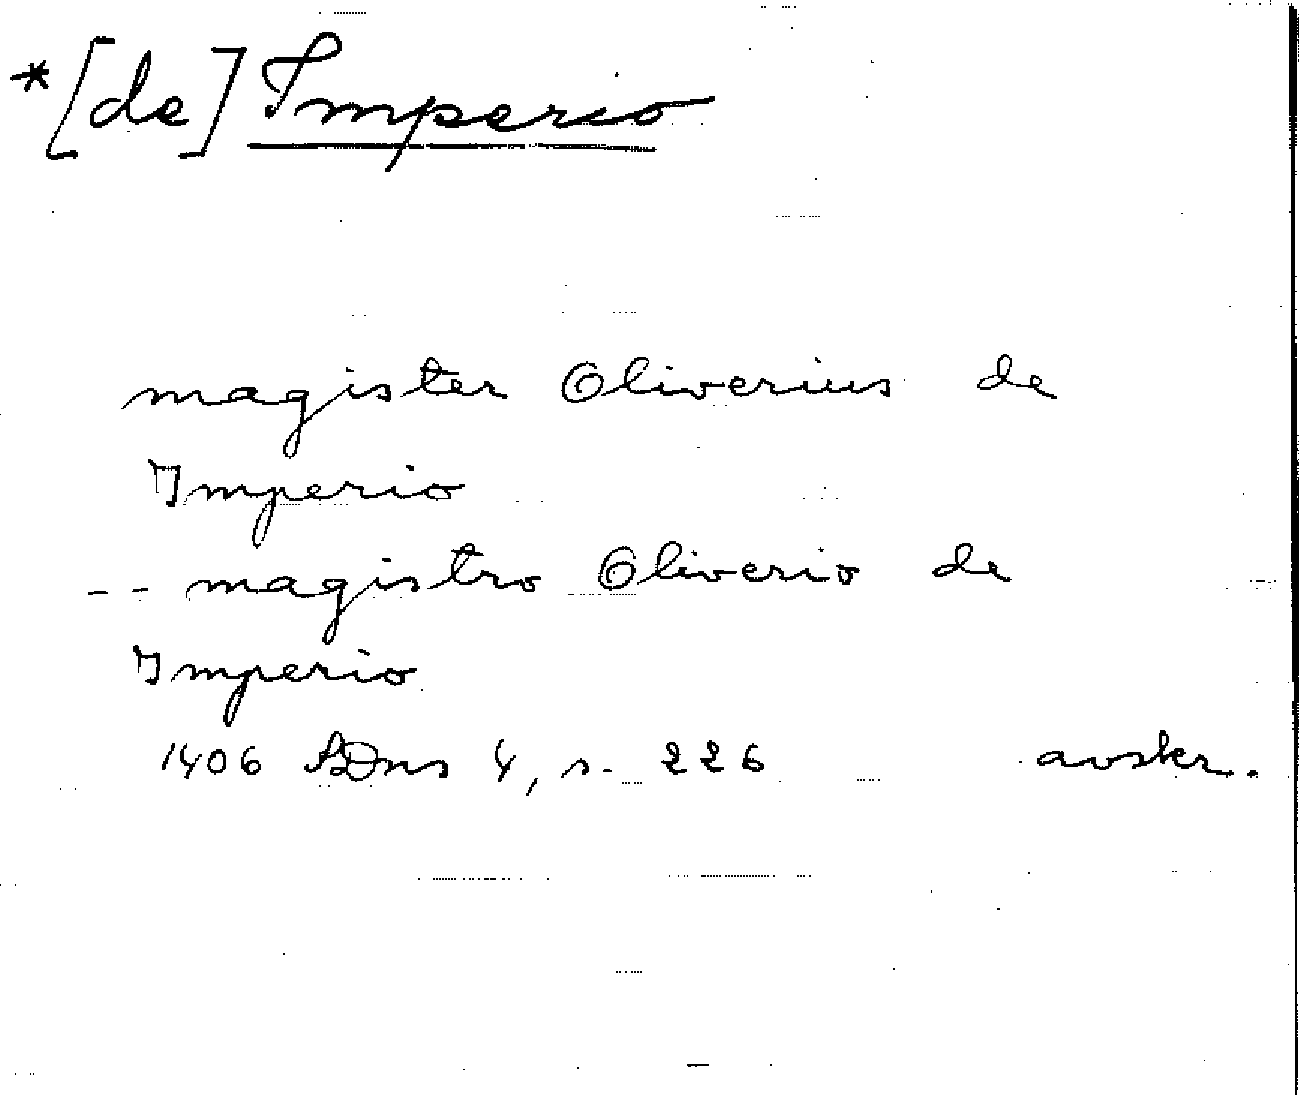 *[de] Imperio
magister Oliverius de
Imperio
-- magistro Oliverio de
Imperio
1406 SDns 4, s. 226 avskr.